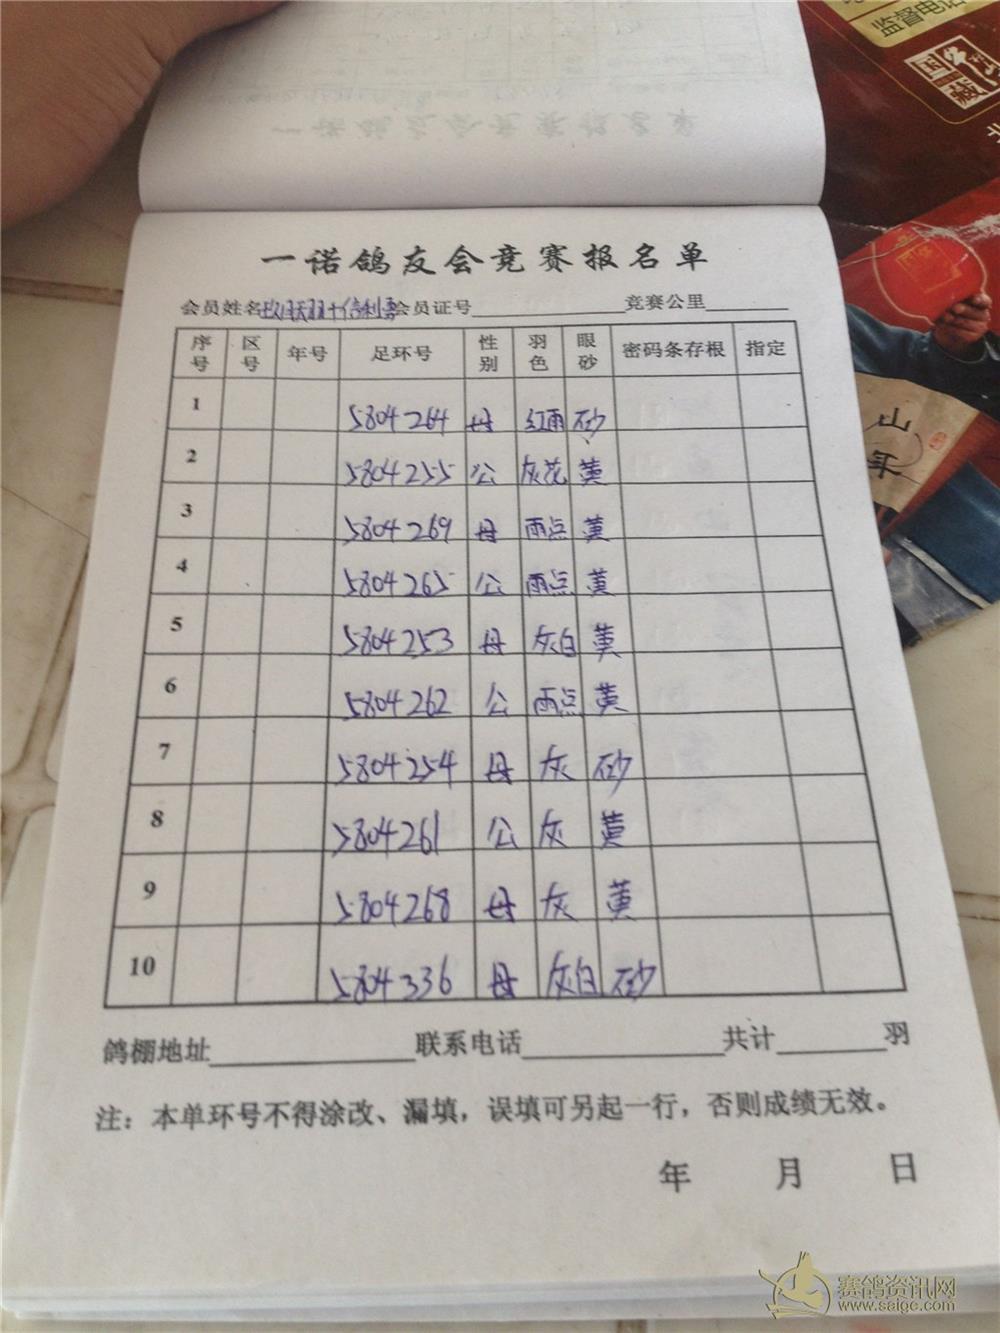 监督电话
国
藏
山
年
一诺鸽友会竞赛报名单
会员姓名 会员证号 竞赛公里
序号 区号 年号 足环号 性别 羽色 眼砂 密码条存根 指定
1 5804264 母 红雨 砂
2 5804255 公 灰花 黄
3 5804269 母 雨点 黄
4 5804265 公 雨点 黄
5 5804253 母 灰白 黄
6 5804262 公 雨点 黄
7 5804254 母 灰 砂
8 5804261 公 灰 黄
9 5804268 母 灰 黄
10 5804336 母 灰白 砂
鸽棚地址 联系电话 共计 羽
注：本单环号不得涂改、漏填，误填可另起一行，否则成绩无效。
年 月 日
赛鸽资讯网
www.saige.com